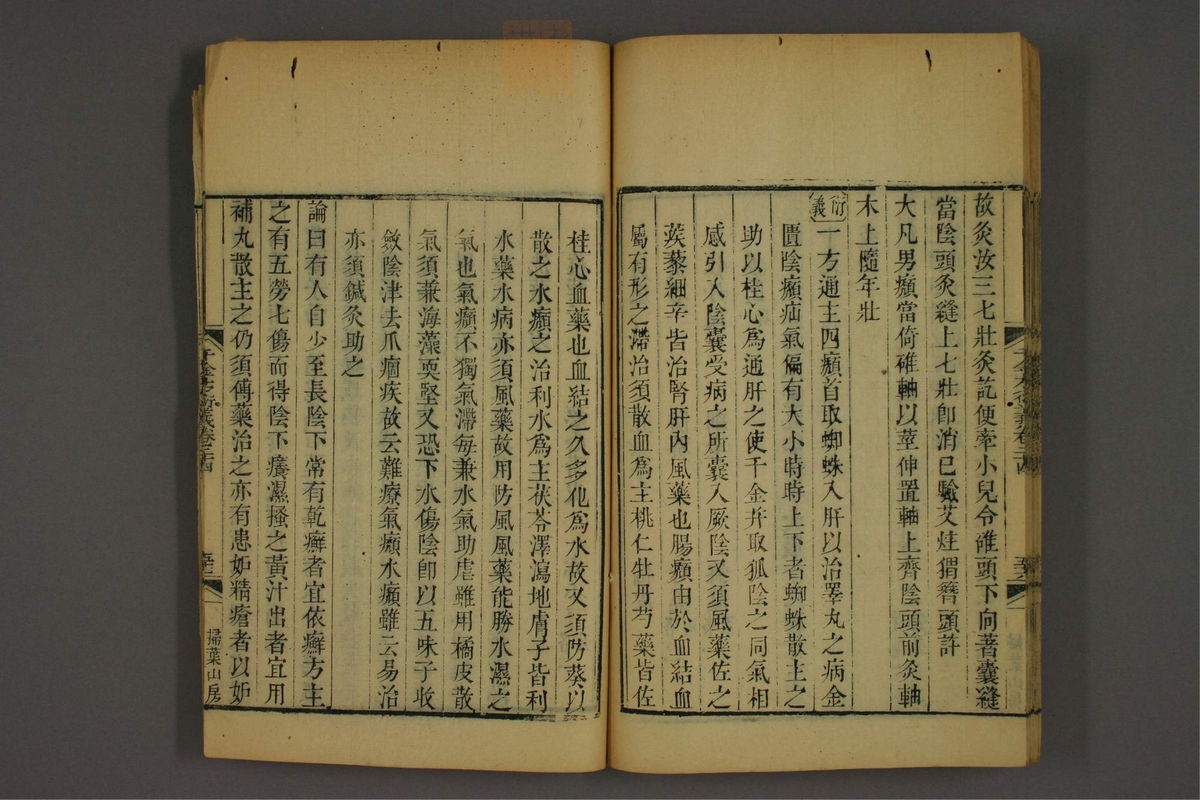 故灸汝三七壯灸訖便牽小兒令雄頭下向著囊縫
當陰頭灸縫上七壯卽消已驗艾炷猬簪頭許
大凡男㿗當倚碓軸以莖伸置軸上齊陰頭前灸軸
木上隨年壯
衍義一方通主四㿗首取蜘蛛入肝以治睪丸之病金
匱陰㿗疝氣偏有大小時時上下者蜘蛛散主之
助以桂心爲通肝之使千金幷取狐陰之同氣相
感引入陰囊受病之所囊入厥陰又須風藥佐之
蒺藜細辛皆治腎肝內風藥也腸㿗由於血結血
屬有形之滯治須散血爲主桃仁牡丹芍藥皆佐
桂心血藥也血結之久多化爲水故又須防葵以
散之水㿗之治利水爲主茯苓澤瀉地膚子皆利
水藥水病亦須風藥故用防風風藥能勝水濕之
氣也氣㿗不獨氣滯每兼水氣助虐雖用橘皮散
氣須兼海藻耎堅又恐下水傷陰卽以五味子收
斂陰津去爪痼疾故云難療氣㿗水㿗雖云易治
亦須鍼灸助之
論曰有人自少至長陰下常有乾癬者宜依癬方主
之有五勞七傷而得陰下癢濕搔之黃汁出者宜用
補丸散主之仍須傅藥治之亦有患妬精瘡者以妬
千金方衍義卷二十四
掃葉山房